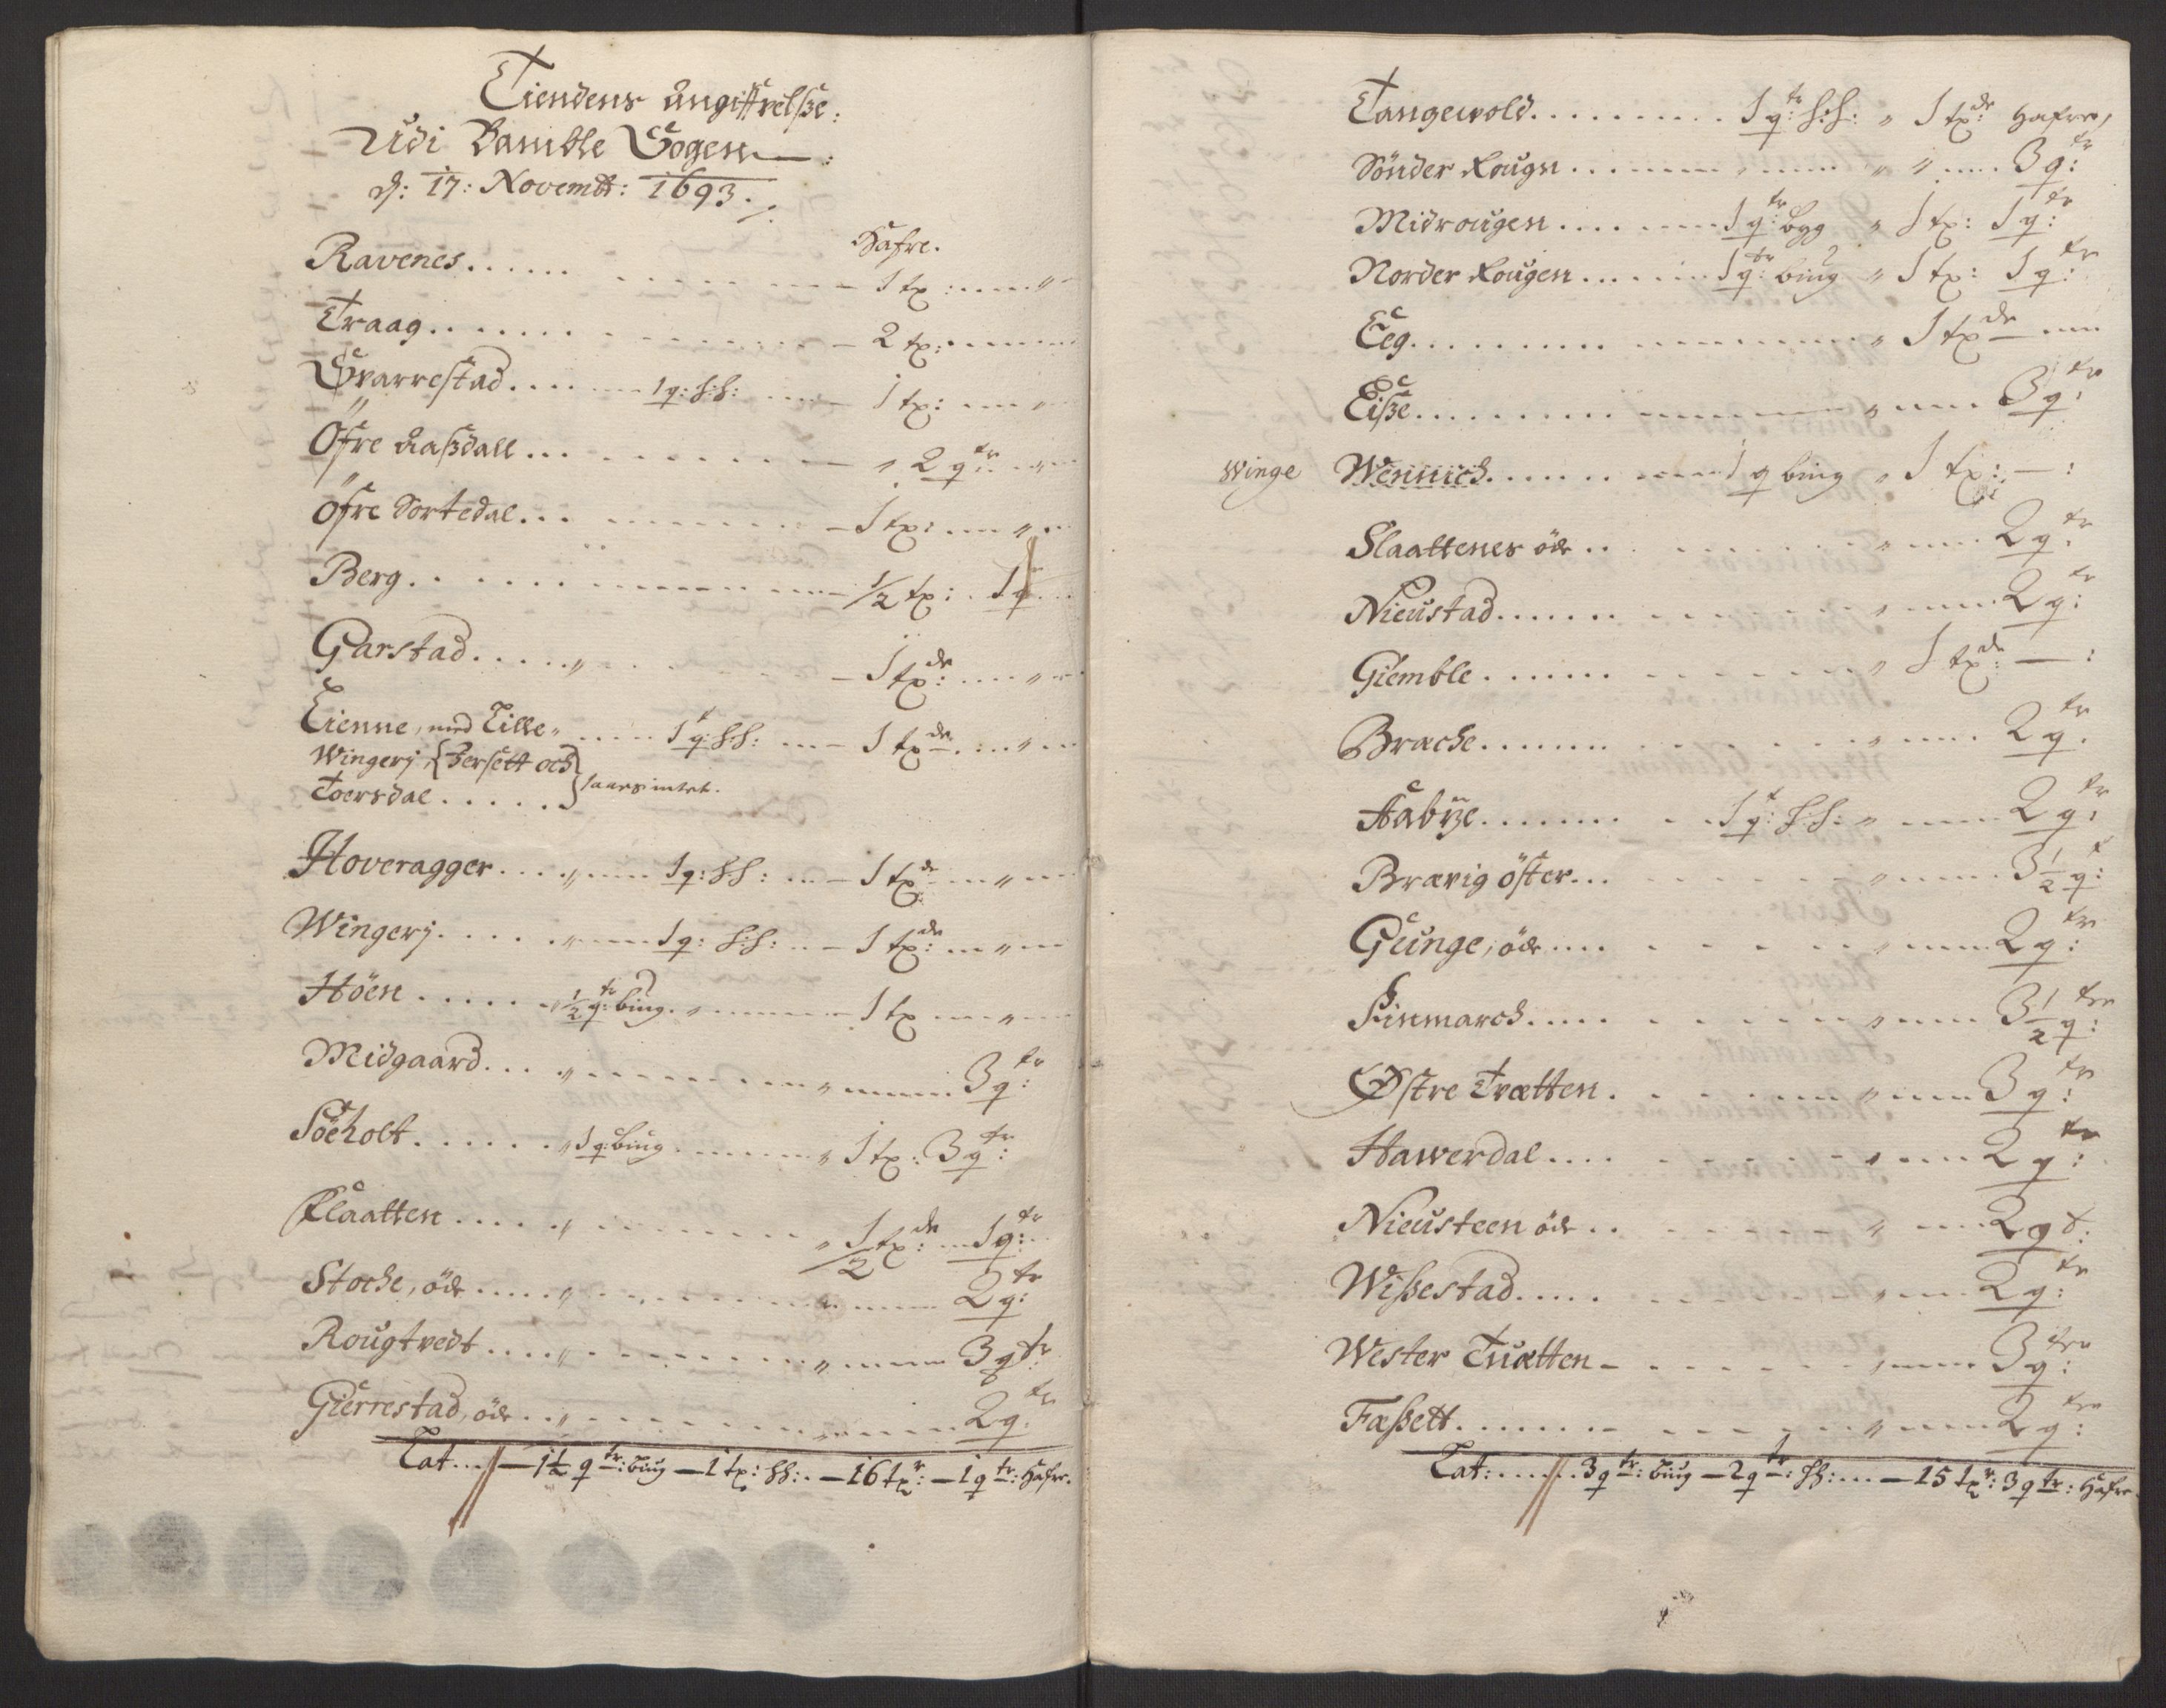 Tiendens Angiffvelsze:
Udi Bamble Sogen —:
d: 17: Novembr: 1693 ./.
Hafre.
Ravenes ...... — 1 tx: ....
Traag ....... — 2 tx: ......
Svarrestad .... 1 q: S:S: .... — 1 tx: ....
Öfre Aaszdall ... — „ 2 qtr: ....
Öfre Sortedal ... — 1 tx: ....
Berg .. — 1/2 tx: .. 1 q ...
Garstad ..... „ — 1 txdr: ....
Eienne, med Lille „ .... 1 qt: S:S: ... — 1 txdr ....
Wingerj, {Bersett och
Toersdal ..... }
Hoveragger .... „ .... 1 q: S:S: ... — 1 txdr ....
Wingerj ..... „ .... 1 q: S:S: .. — 1 txdr: ....
Höen ...... 1/2 qtr: biug. „ ...... — 1 tx ....
Midgaard ... „ ...... „ ..... 3 qtr:
Söeholt ...... „ 1 q: biug ...... „ 1 tx: 3 qtr:
Slaatten ..... „ ...... „ 1/2 txdr: ... 1 qtr:
Stoche, öde ..... „ ...... 2 qtr:
Rougtvedt .... „ ...... „ .... 3 qtr:
Gierrestad, öde .. „ ...... 2 qtr:
Lat ... — 1 1/2 qtr: biug — 1 tx: S:S: . — 16 txr: — 1 qtr: Hafre.
Tangevold .......... 1 qtr: S:S: „ 1 txdr: Hafre,
Sönder Rougn ... ...... „ „ .... 3 qtr:
Midrougen .... .... 1 qtr: byg „ 1 tx: 1 qtr:
Norder Rougen .... 1 qtr: biug „ 1 tx: 1 qtr:
Eeg .......... „ 1 txdr — ....
Eisze .......... „ .... 3 qtr:
Winge Wennich ...... 1 q biug „ 1 tx: — :
Slaattenes öde .. „ .... 2 qtr:
Nieustad ...... „ .... 2 qtr:
Giemble ...... „ 1 txdr: — :
Brache ...... „ .... 2 qtr.
Aabÿe ...... 1 qt: S:S: „ .... 2 qtr:
Brævig öster ... „ .... 3 1/2 qt:
Giunge, öde .... „ .... 2 qtr:
Finmarch ..... „ .... 3 1/2 qtr:
Østre Tvætten . „ .... 3 qtr:
Hawerdal .... „ .... 2 qtr:
Nieusteen öde .. „ .... 2 qt:
Wiszestad ..... „ .... 2 qtr:
Wester Tuætten - „ .... 3 qtr:
Fæszett ...... „ .... 2 qtr:
Lat: ..... 3 qtr: biug — 2 qtr: S:S: ... — 15 txr: 3 qtr: Hafre.